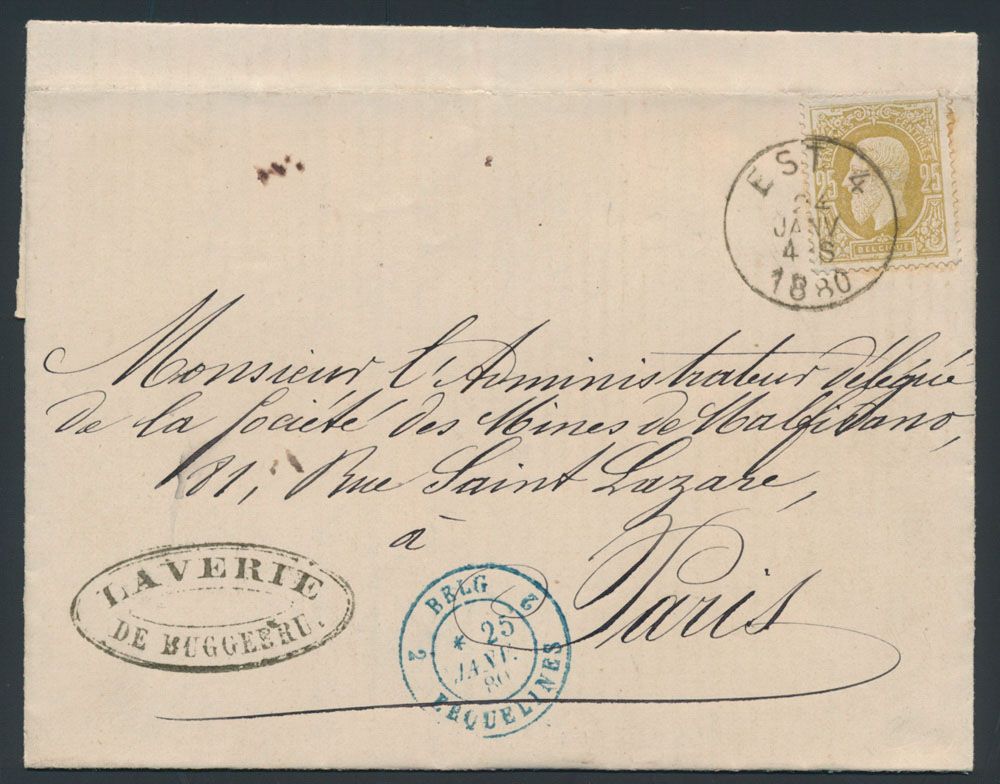 25 CENTIMES 25
BELGIQUE
EST 4
24
JANV
4 S
1880
Monsieur l'Administrateur délégué
de la Société des Mines de Malfidano,
81, Rue Saint Lazare,
à
Paris
LAVERIE
DE BUGGERRU.
BELG 2
* 25
JANV.
80
2 ERQUELINES